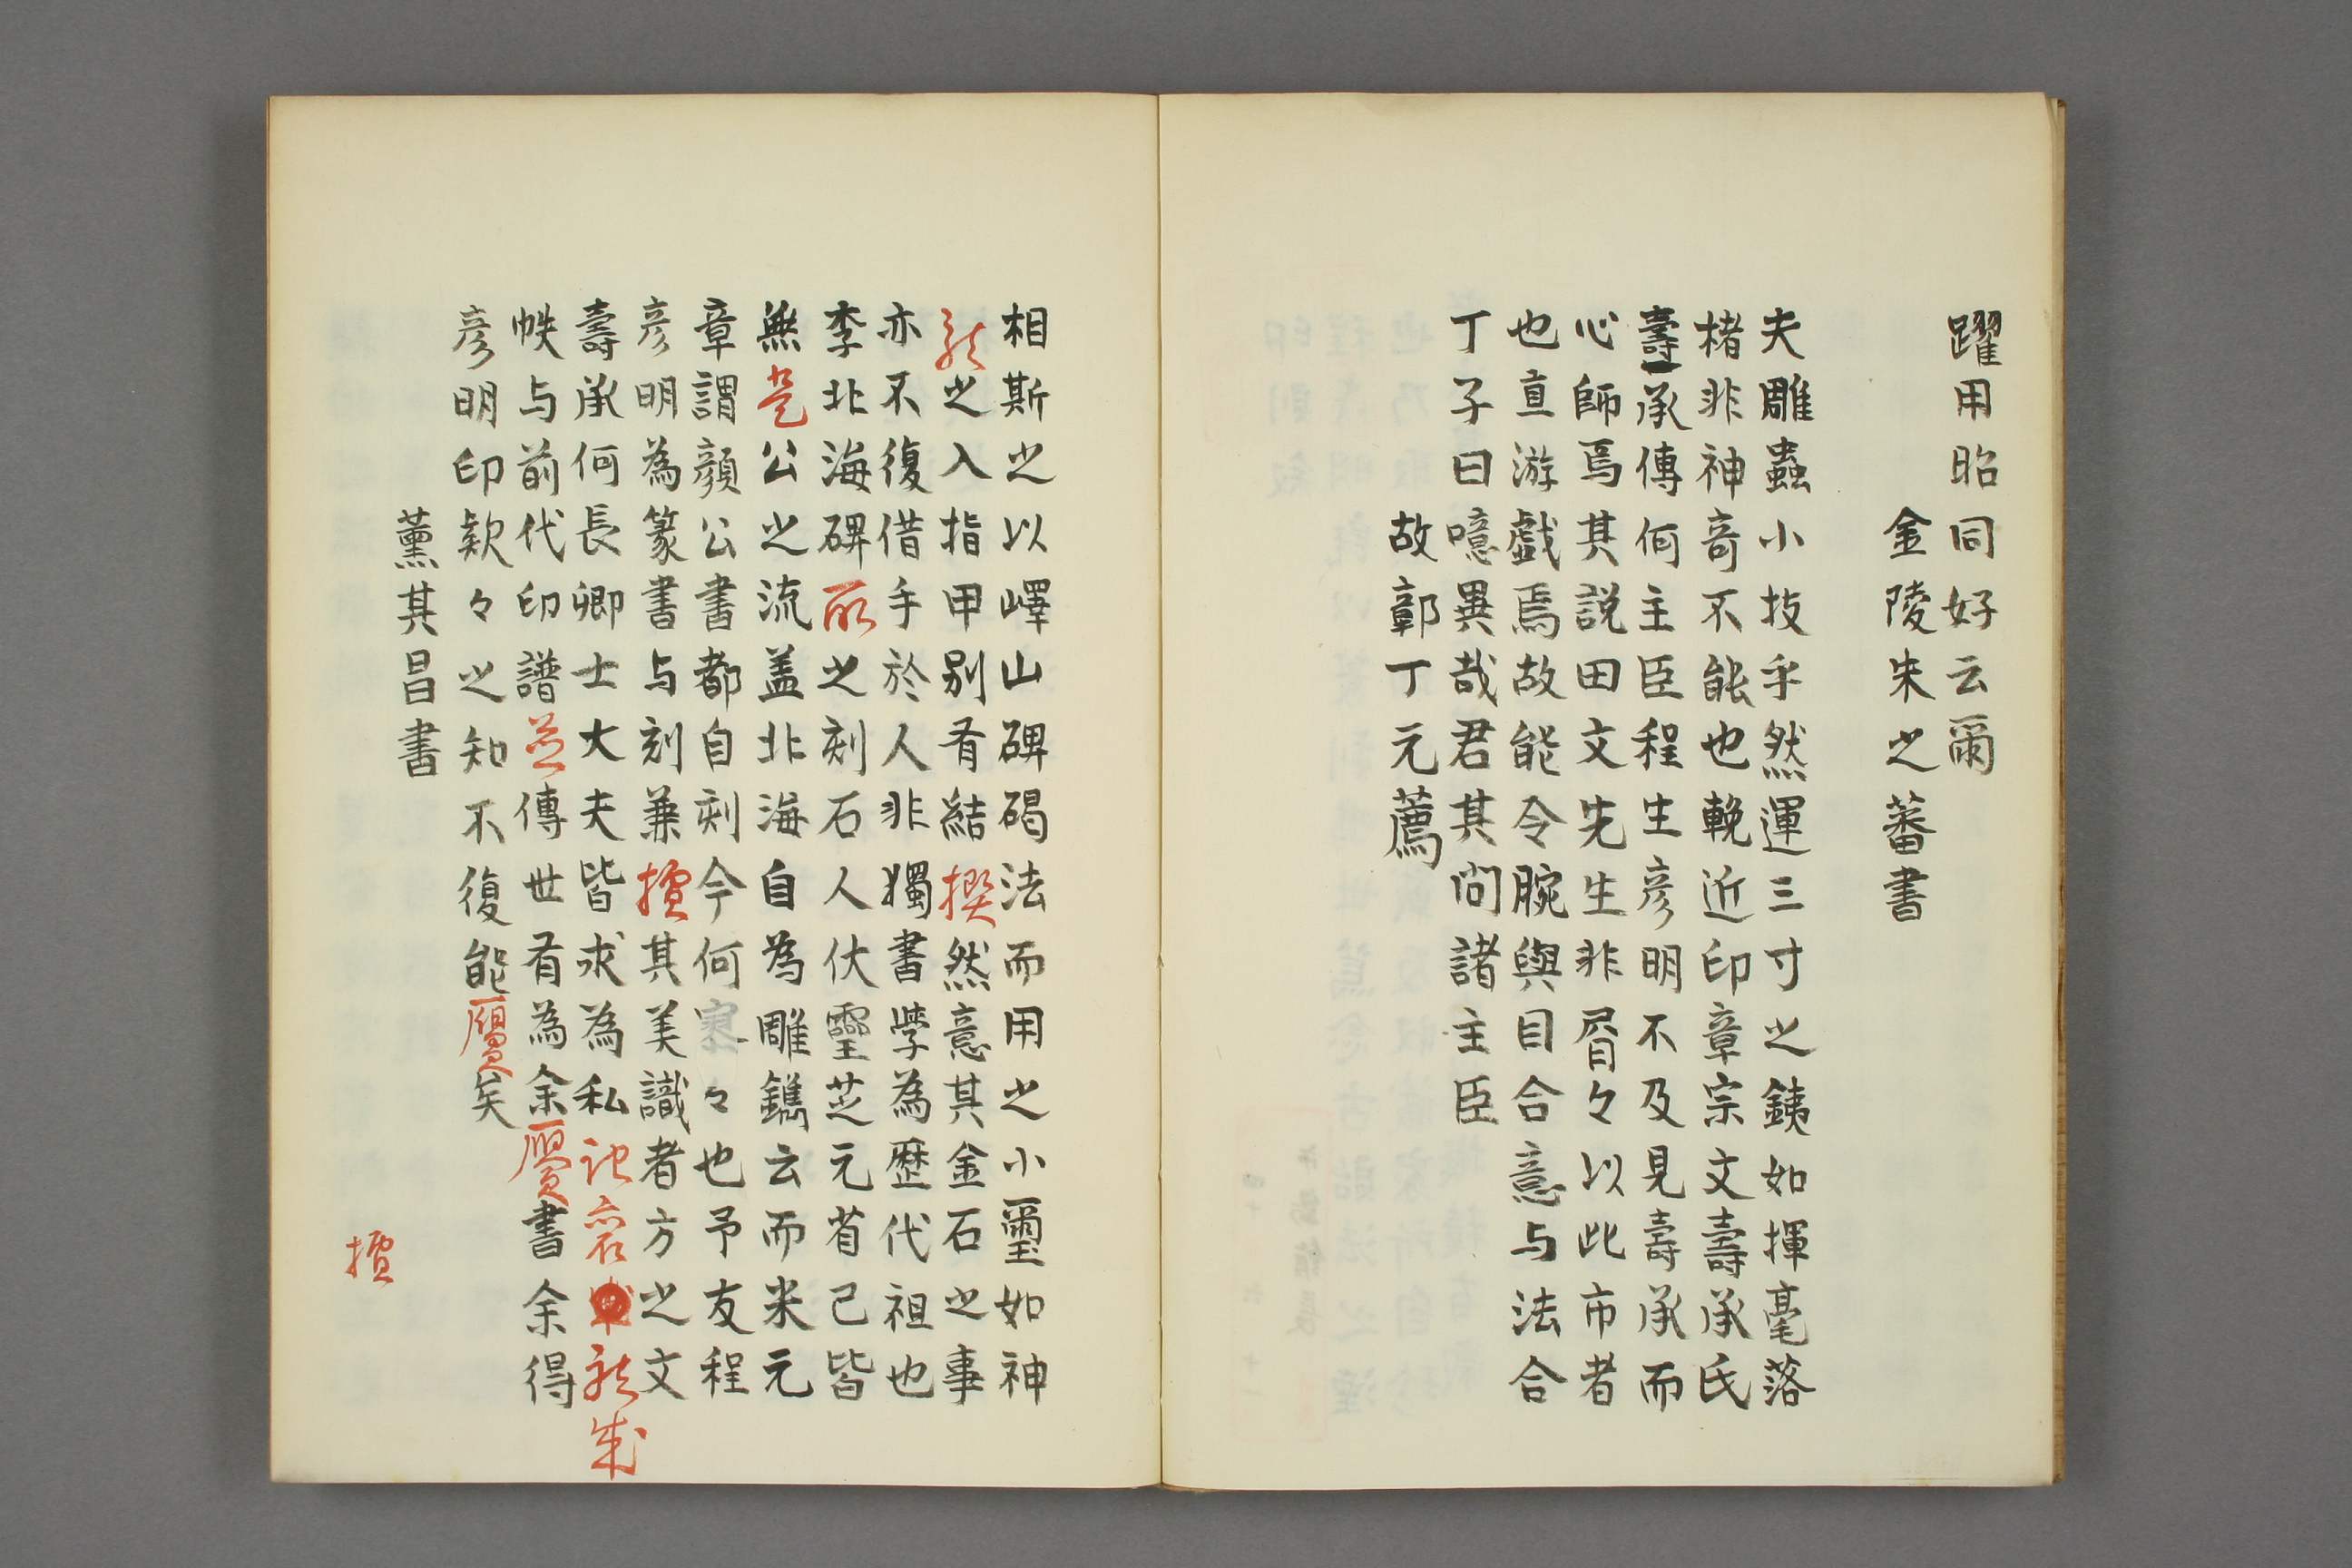 躍用昭同好云爾
金陵朱之蕃書
夫雕蟲小技乎然運三寸之銕如揮毫落
楮非神奇不能也輓近印章宗文壽承氏
壽承傳何主臣程生彦明不及見壽承而
心師焉其説田文先生非屑々以此市者
也直游戯焉故能令腕與目合意与法合
丁子曰噫異哉君其問諸主臣
故鄣丁元薦
相斯之以嶧山碑碣法而用之小璽如神
龍之入指甲别有結撰然意其金石之事
亦不復借手於人非獨書學為歴代祖也
李北海碑所之刻石人伏靈芝元省己皆
無是公之流盖北海自為雕鐫云而米元
章謂顔公書都自刻今何寥々也予友程
彦明為篆書与刻兼擅其美識者方之文
壽承何長卿士大夫皆求為私記裒龍成
帙与前代印譜並傳世有為余贋書余得
彦明印欵々之知不復能贋矣
董其昌書
擅